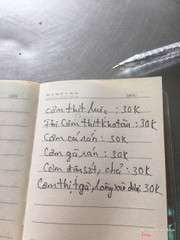 Cơm thịt luộc : 30K
Cơm thịt kho tàu : 30K
Cơm cá rán : 30K
Cơm gà rán : 30K
Cơm đậu sốt, chả : 30K
Cơm thịt gà, lòng xào dưa 30K